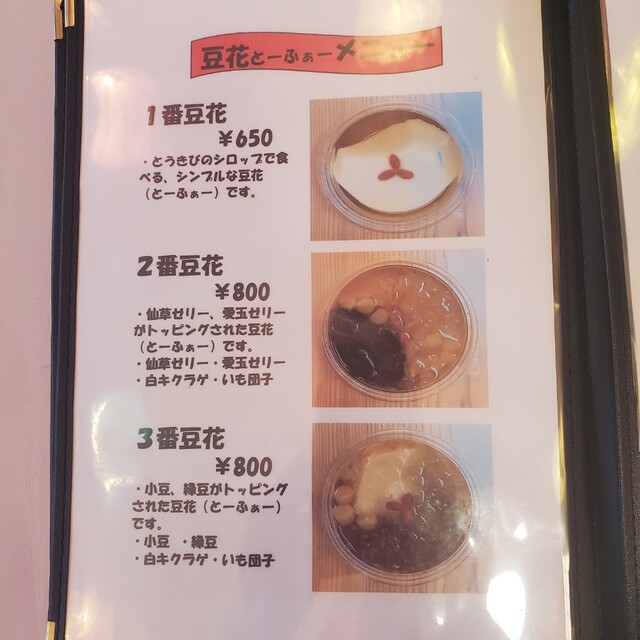 豆花とーふぁーメニュー
1番豆花
¥650
・とうきびのシロップで食
べる、シンプルな豆花
（とーふぁー）です。
2番豆花
¥800
・仙草ゼリー、愛玉ゼリー
がトッピングされた豆花
（とーふぁー）です。
・仙草ゼリー・愛玉ゼリー
・白キクラゲ・いも団子
3番豆花
¥800
・小豆、緑豆がトッピング
された豆花（とーふぁー）
です。
・小豆 ・緑豆
・白キクラゲ・いも団子